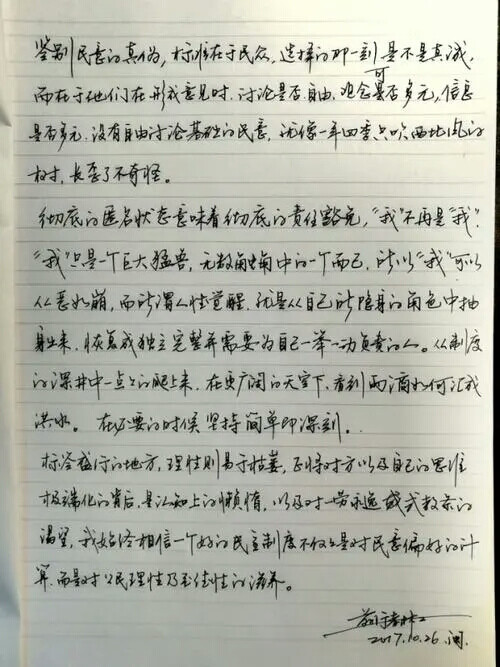 鉴别民意的真伪，标准在于民众，选择的那一刻是不是真诚，
而在于他们在形成意见时，讨论是否自由，观念可否多元，信息
是否多元，没有自由讨论基础的民意，就像一年四季只吹西北风的
树，长歪了不奇怪。
彻底的匿名状态意味着彻底的责任豁免，“我”不再是“我”，
“我”只是一个巨大猛兽，无数触角中的一个而已，所以“我”可以
从恶如崩，而所谓人性觉醒，就是从自己所隐身的角色中抽
身出来，恢复成独立完整并需要为自己一举一动负责的人。从制度
的深井中一点点的爬上来，在更广阔的天空下，看到雨滴如何汇成
洪水。在必要的时候坚持简单即深刻。
标签盛行的地方，理性则易于枯萎，正将对方以及自己的思维
极端化的背后，是认知上的懒惰，以及对一劳永逸感式教条的
渴望，我始终相信一个好的民主制度不仅仅是对民意偏好的计
算，而是对公民理性乃至佳性的滋养。
2017.10.26.闽.